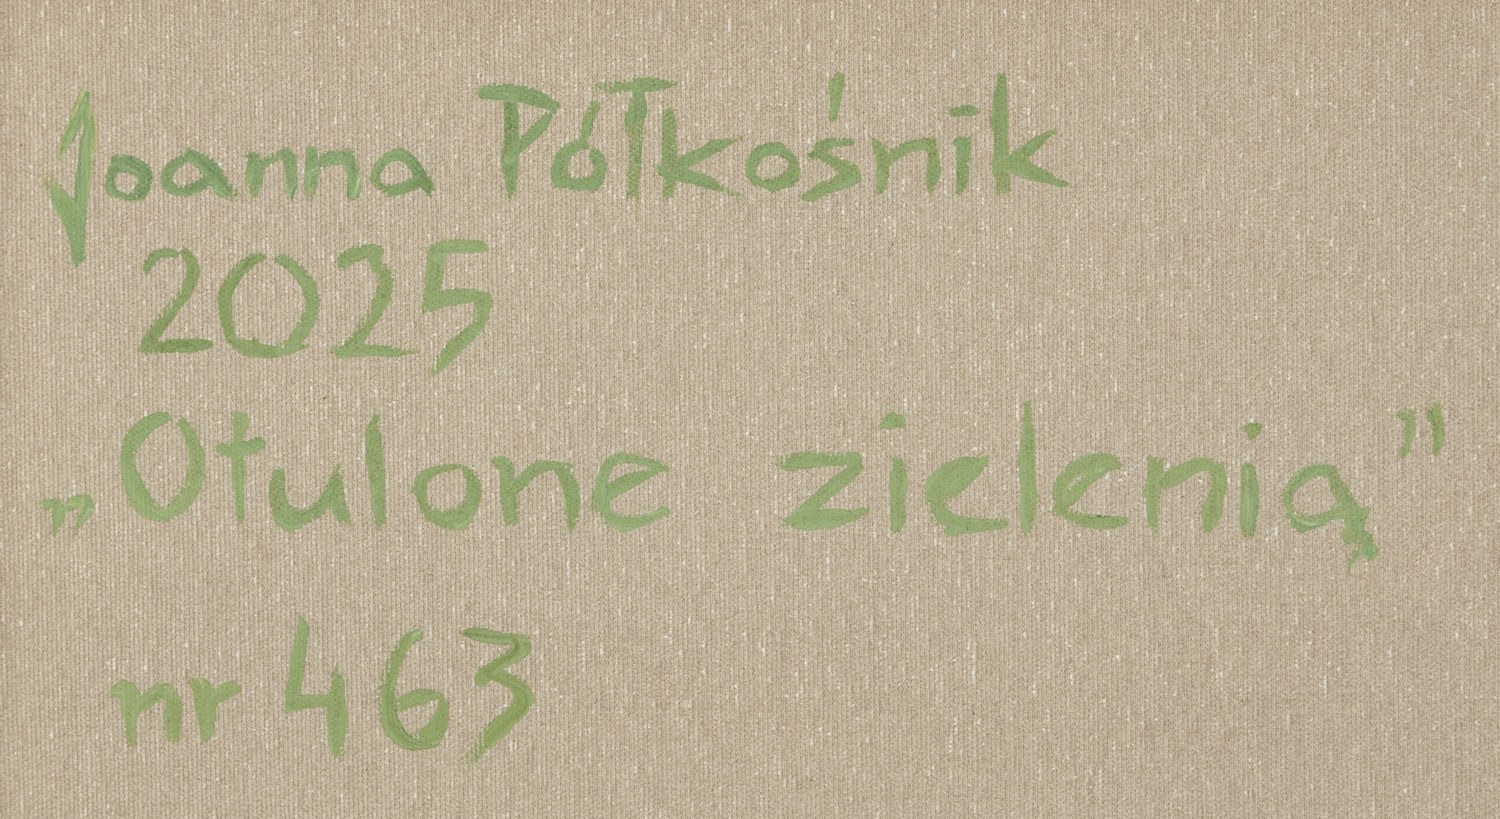 Joanna Półkośnik
2025
„Otulone zielenią”
nr 463